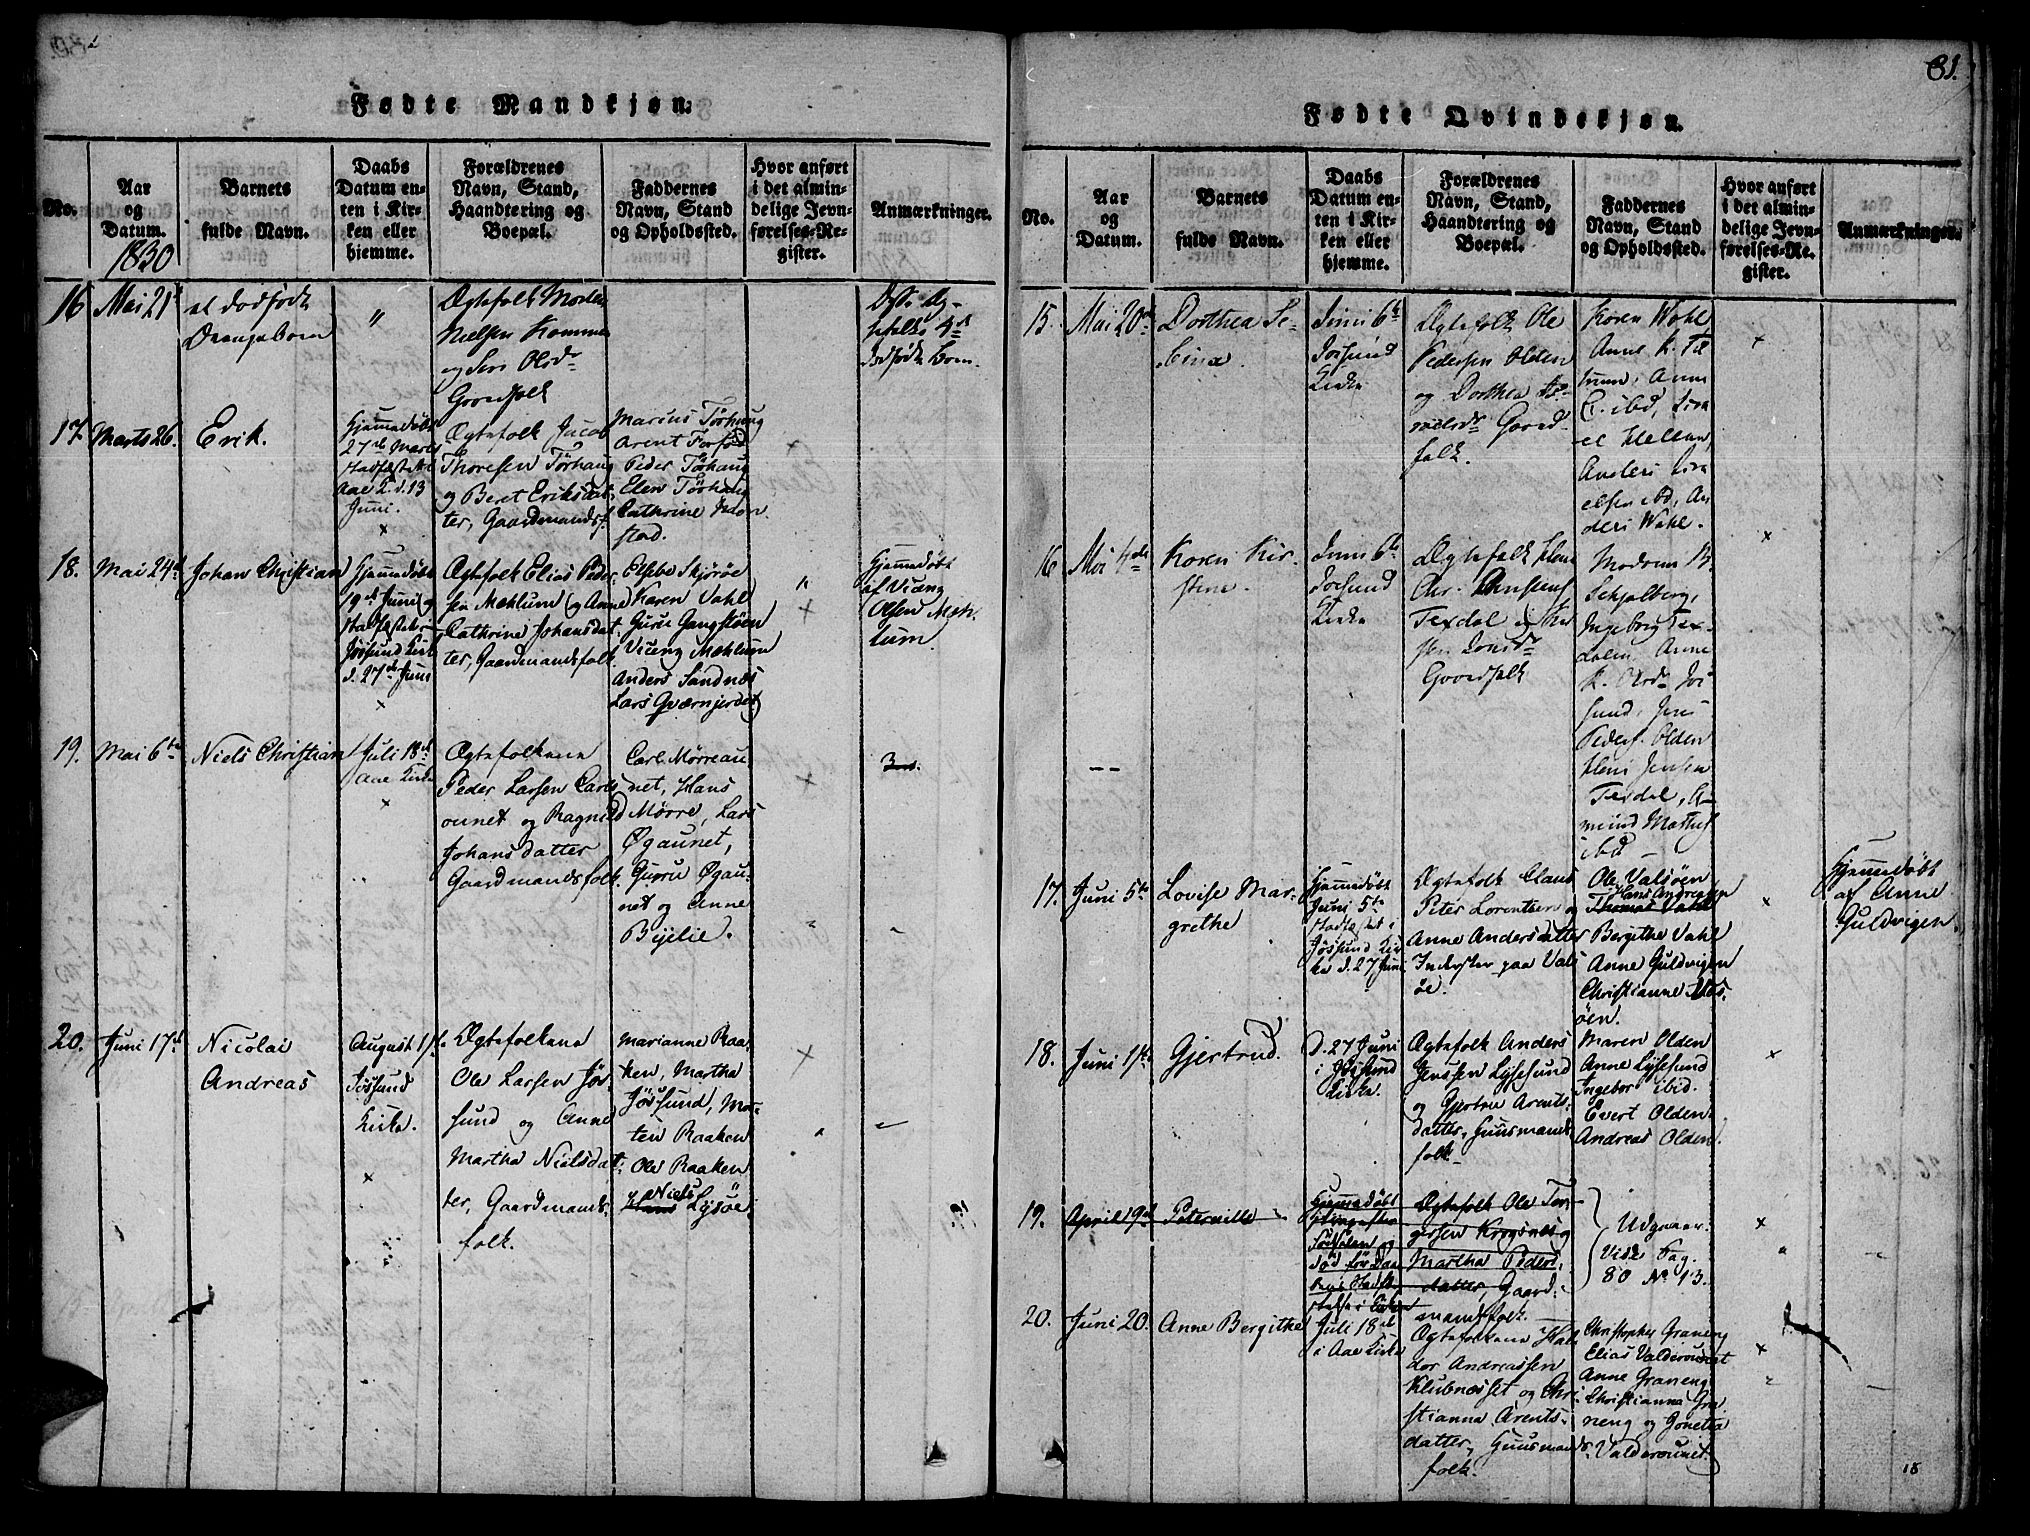 Fødte Mandkjøn.
No.
Aar
og
Datum.
1830
Barnets
fulde Navn.
Daabs
Datum en-
ten i Kir-
ken eller
hjemme.
Forældrenes
Navn, Stand,
Haandtering og
Boepæl.
Faddernes
Navn, Stand
og Opholdssted.
Hvor anført
i det almin-
delige Jevn-
førelses-Re-
gister.
Anmærkninger.
16
Mai 21
et dødfødt
Drengebarn
"
Ægtefolk Morten
Nielsen
og Olsdr
Gaardfolk
Dødfødt
17.
Marts 26.
Erik.
Hjemmedøbt
27de Marts
stadfæstet i
Aae K. d. 13
Juni.
Ægtefolk Jacob
Thoresen Tørhaug
og Beret Eriksdat-
ter, Gaardmandsf.
Marius Tørhaug
Arent
Peder Tørhaug
Elen Tørhaug
Cathrine
18.
Mai 24
Johan Christian
Hjemmedøbt
19de Juni og
stadfæstet i
Jøssund Kirke
d. 27de Juni
Ægtefolk Elias Peder-
sen Mæhlum og Anne
Cathrine Johansdat-
ter, Gaardmandsfolk
Elsebe Skjørøe
Karen Vahl
Guru Gangstøen
Viceng Mæhlum
Anders Sandnæs
Lars Qværnjerdet
Hjemmedøbt
af Viceng
Olsen Mæh-
lum.
19.
Mai 6te
Niels Christian
Juli 18de
Aae Kirke
Ægtefolkene
Peder Larsen Carls
ounet og Ragnild
Johansdatter
Gaardmandsfolk.
Carl Mørreau
net, Hans
Mørre, Lars
Øgaunet,
Guru Øgau-
net og Anne
Byelie.
20.
Juni 17de
Nicolai
Andreas
August 1ste
Jøssund
Kirke.
Ægtefolkene
Ole Larsen Jøs-
sund og Anne
Martha Nielsdat-
ter, Gaardmands-
folk.
Marianne Raa-
ken, Martha
Jøssund, Mor-
ten Raaken
Ole Raaken
Niels
Hans Lysøe
81.
Fødte Qvindekjøn.
No.
Aar
og
Datum.
Barnets
fulde Navn.
Daabs
Datum en-
ten i Kir-
ken eller
hjemme.
Forældrenes
Navn, Stand,
Haandtering og
Boepæl.
Faddernes
Navn, Stand
og Opholdssted.
Hvor anført
i det almin-
delige Jevn-
førelses-Re-
gister.
Anmærkninger.
15.
Mai 20de
Dorthea Se-
Juni 6te
Jøssund
Kirke
Ægtefolk Ole
Pedersen Olden
og Dorthea
Gaard
folk.
Karen Wahl
Anne K.
Anne
ibd,
Anders
ibd, An
ders Wahl.
16
Mai 4de
Karen Kir-
stine.
Juni 6te
Jøssund
Kirke
Ægtefolk Hans
Chr. Jensen
Texdal og Kir
sten
Gaardfolk
Madam M.
Schjølberg,
Ingeborg Tex-
dalen, Anne
K. Olsdr Jøs
sund, Jens
Peders. Olden
Hans Jensen
Texdal,
ibd
17.
Juni 5te
Lovise Mar-
grethe
Hjemmedøbt
Juni 5te
stadfæstet i
Jøssund Kir-
ke d. 27 Juni
Ægtefolk Claus
Peter Lorentsen og
Anne Andersdatter
Inderster paa Vals
øe.
Ole Valsøen
Hans Andreassen
Thomas Vahl
Bergithe Vahl
Anne Guldvigen
Christianne Vals-
øen.
Hjemmedøbt
af Anne
Guldvigen.
18.
Juni 1ste
Gjertrud.
D. 27 Juni
i Jøssund
Kirke.
Ægtefolk Anders
Jenssen Lysesund
og Gjertru Arents-
datter, Huusmands
folk
Maren Olden
Anne Lysesund
Ingebor ibid.
Evert Olden
Andreas Olden.
19.
April 9de
Peternille
Hjemmedøbt
Ægtefolk Ole Tor-
gersen Krogsnes og
Martha Peders-
datter, Gaard-
mandsfolk.
Udgaaer.
Vide Pag.
80 No 13.
20.
Juni 20.
Anne Bergithe
Juli 18de
i Aae Kirke
Ægtefolkene Hal
dor Andreassen
Klubnesset og Chri-
stianna Arents-
datter, Huusmands-
folk.
Christopher Graneng
Elias Valderounet
Anne Graneng
Christianna Gra
neng og Gonetta
Valderounet.
18